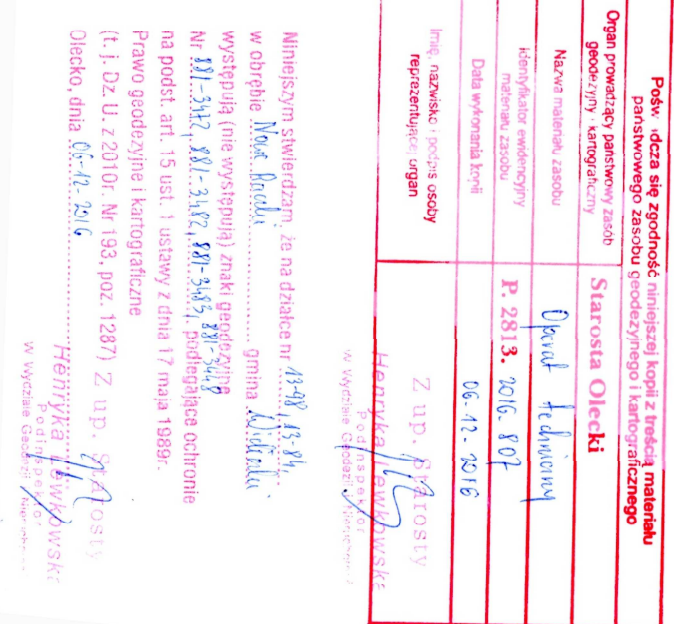 Poświadcza się zgodność niniejszej kopii z treścią materiału
państwowego zasobu geodezyjnego i kartograficznego
Organ prowadzący państwowy zasób
geodezyjny i kartograficzny
Starosta Olecki
Nazwa materiału zasobu
Operat techniczny
identyfikator ewidencyjny
materiału zasobu
P. 2813. 2016. 807
Data wykonania kopii
06-12-2016
Imię, nazwisko i podpis osoby
reprezentującej organ
Z up. Starosty
Henryka Lewkowska
Podinspektor
w Wydziale Geodezji
Niniejszym stwierdzam, że na działce nr 13-98, 13-84,
w obrębie Nowe Raczki gmina
występują (nie występują) znaki geodezyjne
Nr 881-3472, 881-3482, 881-3483, 881-3448 podlegające ochronie
na podst. art. 15 ust. 1 ustawy z dnia 17 maja 1989r.
Prawo geodezyjne i kartograficzne
(t. j. Dz. U. z 2010r. Nr 193, poz. 1287)
Olecko, dnia 06-12-2016
Z up. Starosty
Henryka Lewkowska
Podinspektor
w Wydziale Geodezji